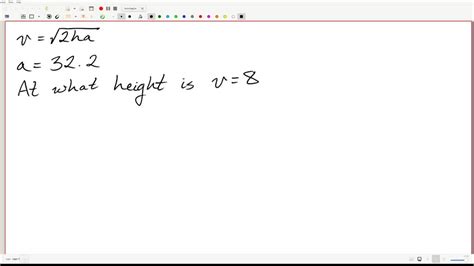 v = √2ha
a = 32.2
At what height is v = 8